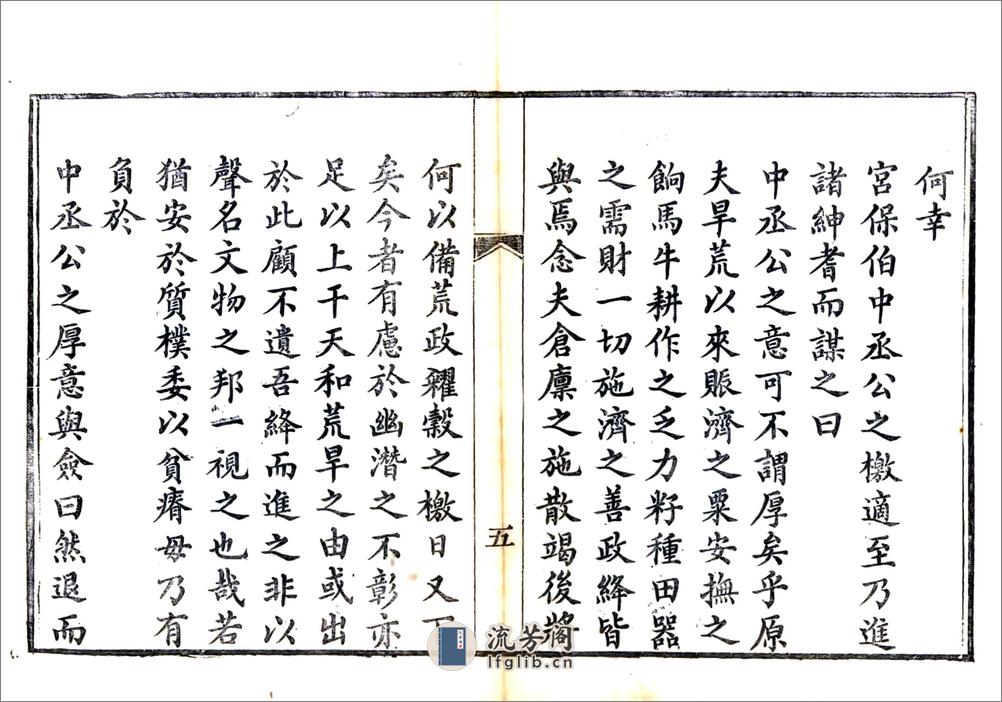 何幸
宮保伯中丞公之檄適至乃進
諸紳耆而謀之曰
中丞公之意可不謂厚矣乎原
夫旱荒以來賑濟之粟安撫之
餉馬牛耕作之乏力籽種田器
之需財一切施濟之善政絳皆
與焉念夫倉廩之施散竭後將
五
何以備荒政糴穀之檄日又下
矣今者有慮於幽潛之不彰亦
足以上干天和荒旱之由或出
於此顧不遺吾絳而進之非以
聲名文物之邦一視之也哉若
猶安於質樸委以貧瘠毋乃有
負於
中丞公之厚意與僉曰然退而
流芳阁
lfglib.cn